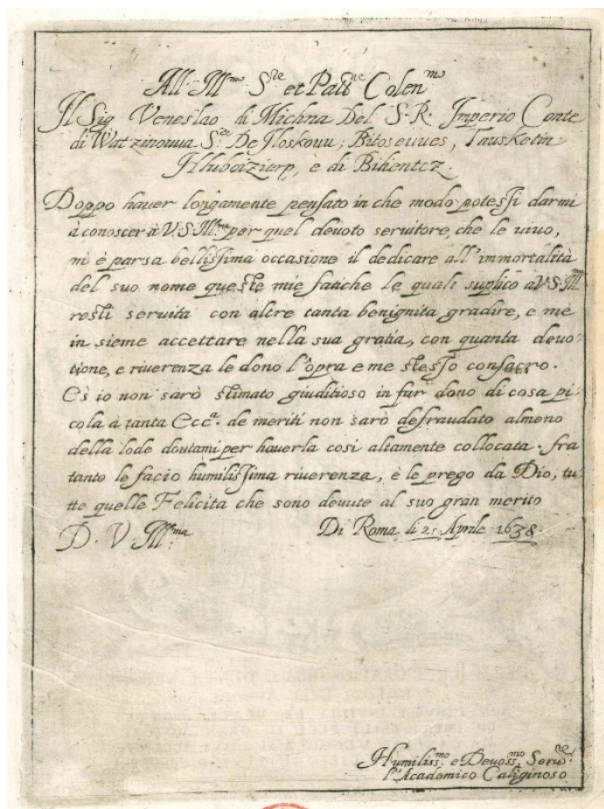 All' Ill.mo S.re et Pat.ne Colen.mo
Il Sig Veneslao di Michna Del S. R. Imperio Conte
di Watzinouua S.re De Iloskouu, Bitoseuues, Tauskotin
Hluboizierp, è di Bikentcz.
Doppo hauer longamente pensato in che modo potessi darmi
à conoscer à V.S. Ill.ma per quel deuoto seruitore, che le uiuo,
mi è parsa bellissima occasione il dedicare all'immortalità
del suo nome queste mie fatiche le quali suplico a V.S. Ill.
resti seruita con altre tanta benignita gradire, e me
in sieme accettare nella sua gratia, con quanta deuo-
tione, e riuerenza le dono l'opra e me stesso consacro.
E s'io non sarò stimato giuditioso in far dono di cosa pi-
cola à tanta Ecc.a de meriti non sarò defraudato almeno
della lode douutami per hauerla cosi altamente collocata. fra
tanto le facio humilissima riuerenza, e le prego da Dio, tu-
tte quelle Felicita che sono deuute al suo gran merito
D. V. Ill.ma Di Roma li 21 Aprile 1638
Humiliss.mo e Deuoss.mo Seru.re
l'Academico Caliginoso